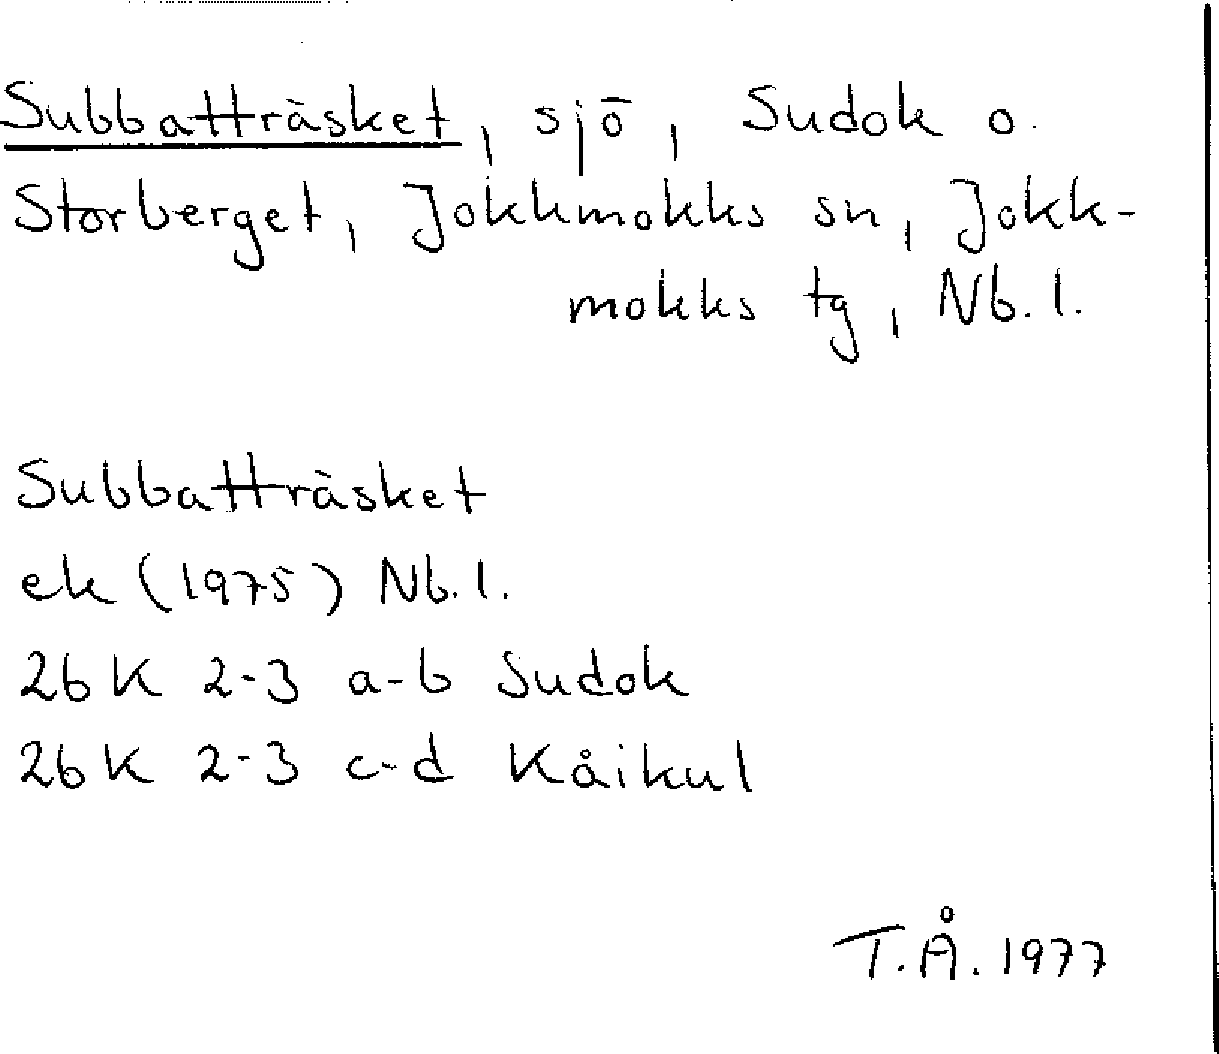 Subbatträsket, sjö, Sudok o.
Storberget, Jokkmokks sn, Jokk-
mokks tg, Nb. l.
Subbatträsket
ek (1975) Nb. l.
26 K 2-3 a-b Sudok
26 K 2-3 c-d Kåikul
T.Å. 1977